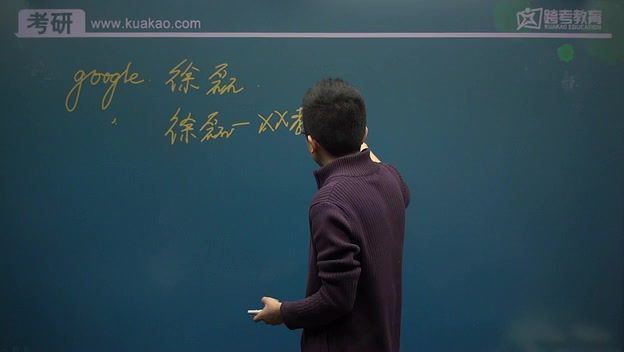 考研 www.kuakao.com 跨考教育
KUAKAO EDUCATION
google. 徐磊.
徐磊一XX教